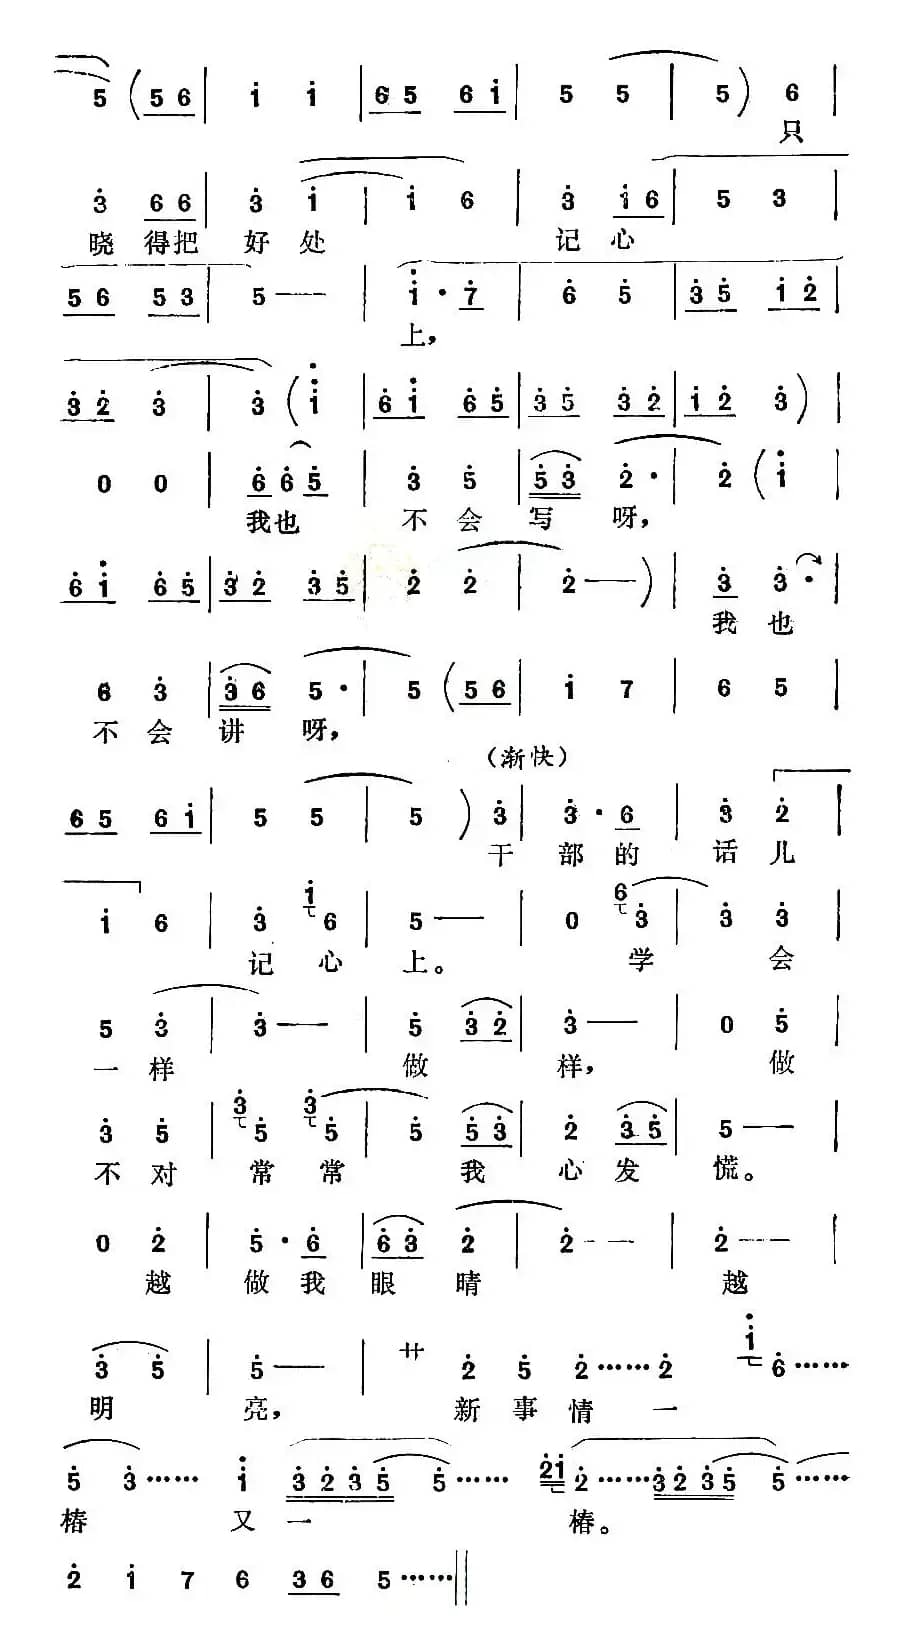 5 (5 6 | 1 1 | 6 5 6 1 | 5 5 | 5) 6 |
只
3 6 6 | 3 1 | 1 6 | 3 1 6 | 5 3 |
晓 得把 好 处 记 心
5 6 5 3 | 5 — | 1 · 7 | 6 5 | 3 5 1 2 |
上，
3 2 3 | 3 (1 | 6 1 6 5 | 3 5 3 2 | 1 2 3) |
0 0 | 6 6 5 | 3 5 | 5 3 2 · | 2 (1 |
我也 不 会 写 呀，
6 1 6 5 | 3 2 3 5 | 2 2 | 2 —) | 3 3 · |
我 也
6 3 | 3 6 5 · | 5 (5 6 | 1 7 | 6 5 |
不 会 讲 呀，
（渐快）
6 5 6 1 | 5 5 | 5 ) 3 | 3 · 6 | 3 2 |
干 部 的 话 儿
1 6 | 3 1 6 | 5 — | 0 6 3 | 3 3 |
记 心 上。 学 会
5 3 | 3 — | 5 3 2 | 3 — | 0 5 |
一 样 做 样， 做
3 5 | 3 5 3 5 | 5 5 3 | 2 3 5 | 5 — |
不 对 常 常 我 心 发 慌。
0 2 | 5 · 6 | 6 3 2 | 2 — — | 2 — — |
越 做 我 眼 睛 越
3 5 | 5 — | サ 2 5 2 …… 2 1 6 ……
明 亮， 新 事 情 一
5 3 …… 1 3 2 3 5 5 …… 2 1 2 …… 3 2 3 5 5 ……
椿 又 一 椿。
2 1 7 6 3 6 5 …… ‖